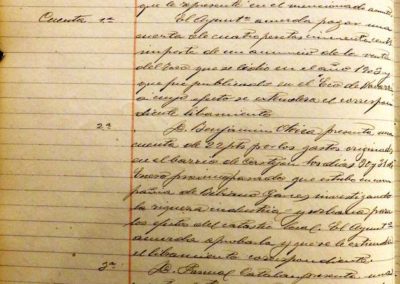 que le represente en el mencionado
Cuenta 1ª El Ayuntº acuerda pagar una
cuenta de cuatro pesetas
importe de un anuncio de la venta
del que se en el año 1903 y
que fue publicado en el "Eco de Navarra"
a cuyo efecto se estenderá el correspon
diente libramiento.
2ª D. Benjamin presenta una
cuenta de 22 pts por los gastos originados
en el barrio de Castejon los dias 30 y 31 de
Enero proximo pasado que estubo en com
pañia de investigando
la riqueza industria y urbana para
los efectos del catastro local. El Ayuntº
acuerda aprobarla y que se le estienda
el libramiento correspondiente.
3ª D. Pascual Catalan presenta una